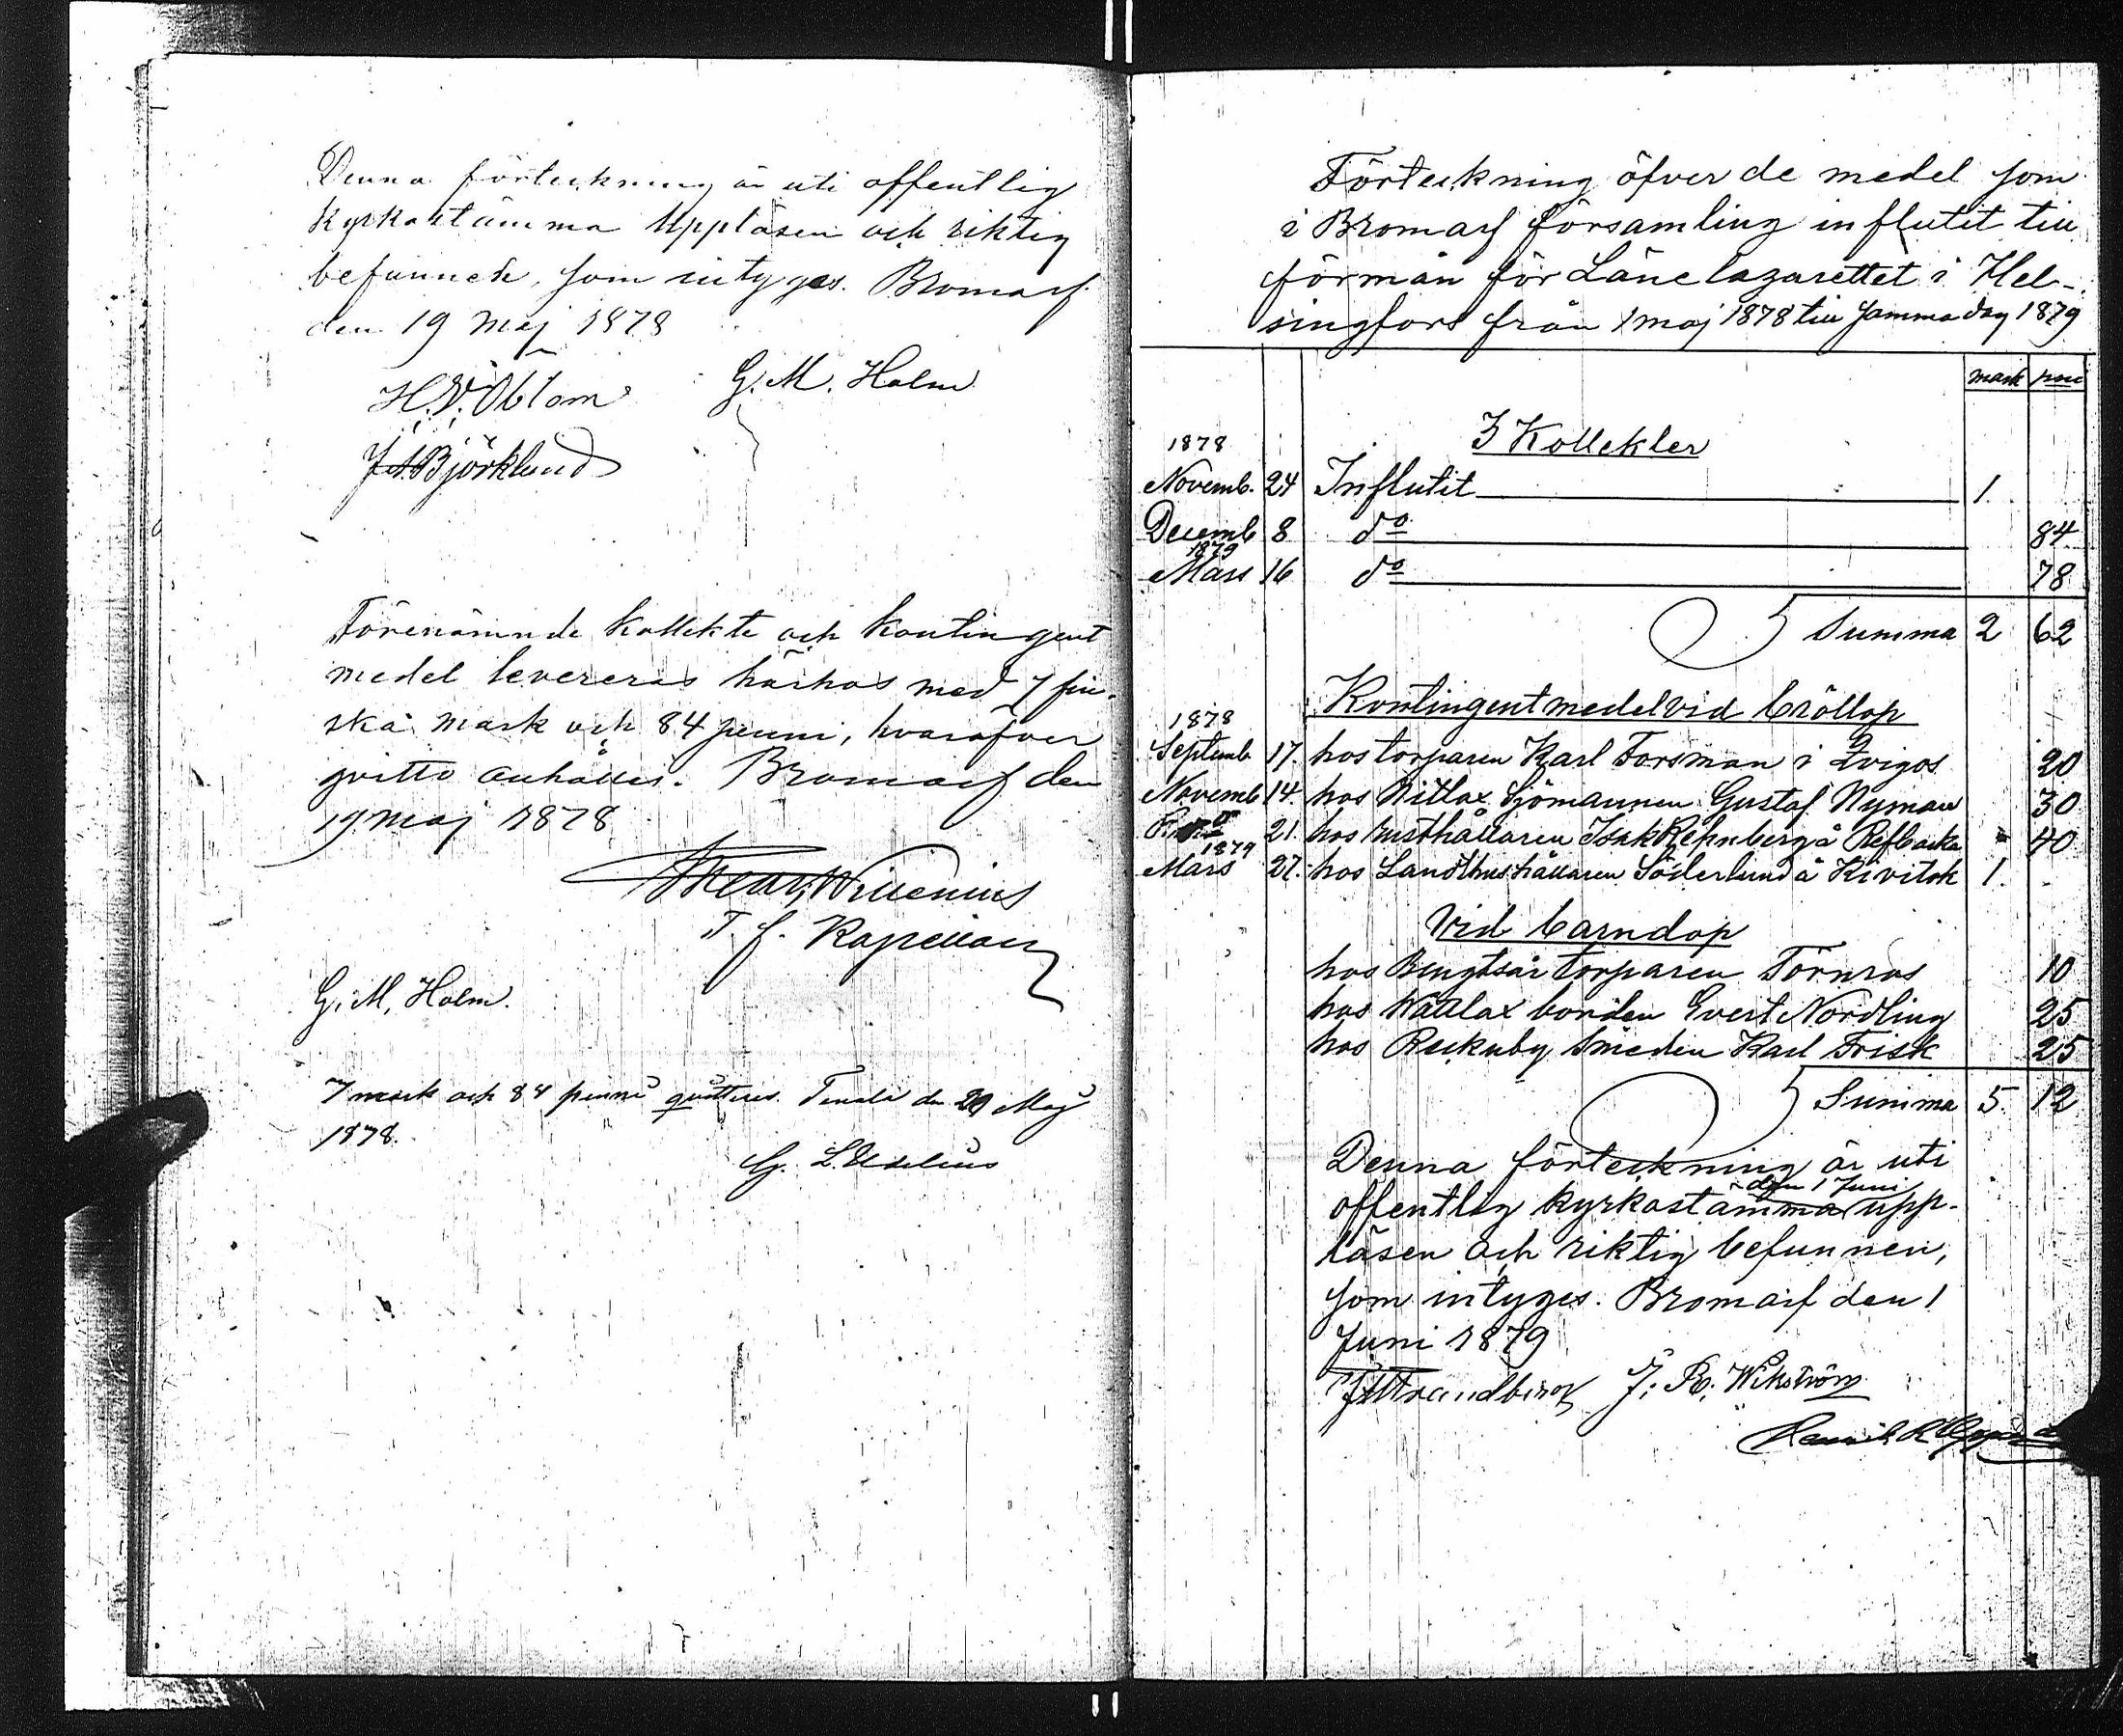 Denna förteckning är uti offentlig
kyrkostämma uppläsen och riktig
befunnen, som intygas. Bromarf
den 19 Maj 1878
G. M. Holm
J. A. Björklund
Förenämnde kollekte och kontingent
medel levereras härhos med 7 fin-
ska mark och 84 penni, hvaröfver
qvitto anhålles. Bromarf den
19 Maj 1878
Willenius
T. f. Kapellan
G. M. Holm.
7 mark och 84 penni quitteras. Tenala den 20 Maj
1878.
G. L.
Förteckning öfver de medel som
i Bromarf församling influtit till
förmån för Länelazarettet i Hel-
singfors från 1 maj 1878 till samma dag 1879
mark penni
3 Kollekter
1878
Novemb. 24 Influtit 1.
Decemb 8 do 84
1879
Mars 16 do 78
Summa 2 62
Kontingentmedel vid bröllop
1878
Septemb. 17. hos torparen Karl Forsman i 20
Novemb 14. hos Nitlax Sjömannen Gustaf Nyman 30
21. hos rusthållaren Isak Rehnberg å Refbacka 40
1879
Mars 27. hos Söderlund å Kivitok 1.
Vid barndop
hos Bengtsår torparen Törnros 10
hos Wättlax bonden Evert Nordling 25
hos Reckuby smeden Karl Frisk 25
Summa 5. 12
Denna förteckning är uti
den 1 Juni
offentlig kyrkostämma upp-
läsen och riktig befunnen,
som intyges. Bromarf den 1
Juni 1879
J. R. Wikström